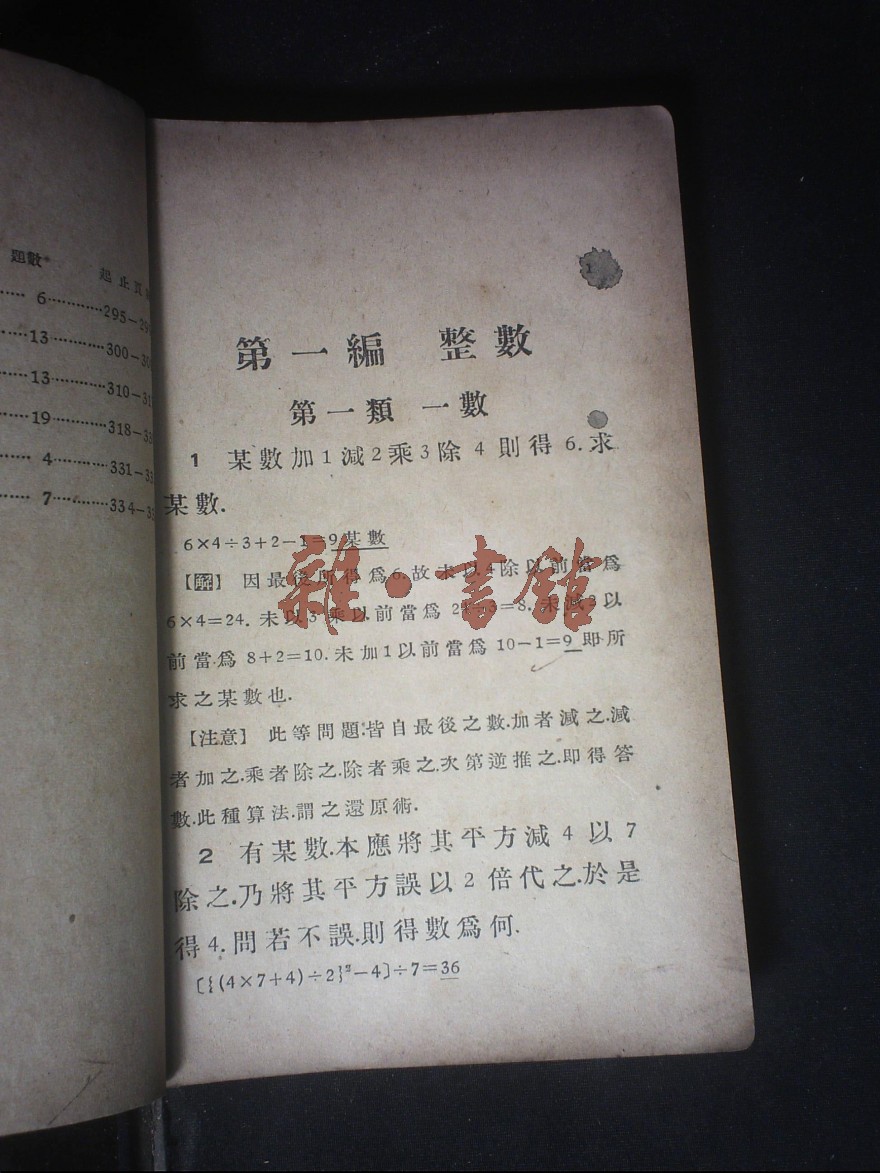 題數
起止頁
6………295—29
13………300—30
13………310—31
19………318—33
4………331—33
7………334—33
1
第一編 整數
第一類 一數
1 某數加1減2乘3除4則得6.求
某數.
6×4÷3+2−1=9某數
【解】 因最後所得爲6.故未以4除以前當爲
6×4=24.未以3乘以前當爲24÷3=8.未減2以
前當爲8+2=10.未加1以前當爲10−1=9即所
求之某數也.
【注意】 此等問題.皆自最後之數.加者減之.減
者加之.乘者除之.除者乘之.次第逆推之.即得答
數.此種算法.謂之還原術.
2 有某數.本應將其平方減4以7
除之.乃將其平方誤以2倍代之.於是
得4.問若不誤.則得數爲何.
〔{(4×7+4)÷2}²−4〕÷7=36
雜·書館